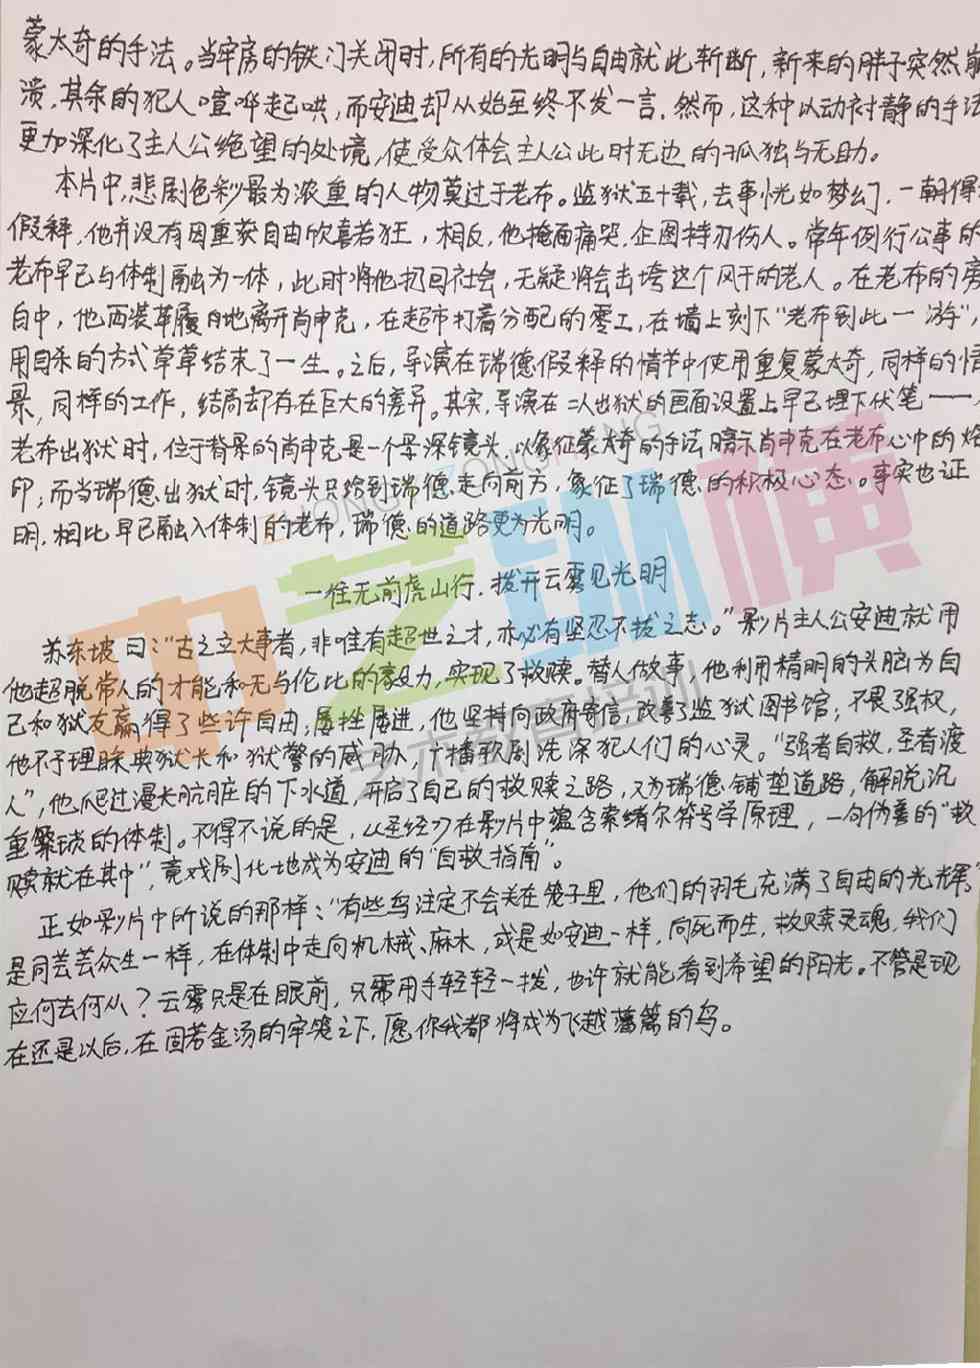 蒙太奇的手法。当牢房的铁门关闭时,所有的光明与自由就此斩断,新来的胖子突然崩
溃,其余的犯人喧哗起哄,而安迪却从始至终不发一言。然而,这种以动衬静的手法
更加深化了主人公绝望的处境,使受众体会主人公此时无边的孤独与无助。
本片中,悲剧色彩最为浓重的人物莫过于老布。监狱五十载,去事恍如梦幻,一朝得
假释,他并没有因重获自由欣喜若狂,相反,他掩面痛哭,企图持刃伤人。常年例行公事的
老布早已与体制融为一体,此时将他扔回社会,无疑将会击垮这个风干的老人。在老布的旁
白中,他西装革履地离开肖申克,在超市打着分配的零工,在墙上刻下“老布到此一游”,
用自杀的方式草草结束了一生。之后,导演在瑞德假释的情节中使用重复蒙太奇,同样的情
景,同样的工作,结局却存在巨大的差异。其实,导演在二人出狱的画面设置上早已埋下伏笔——
老布出狱时,位于背景的肖申克是一个景深镜头,以象征蒙太奇的手法暗示肖申克在老布心中的烙
印;而当瑞德出狱时,镜头只给到瑞德走向前方,象征了瑞德的积极心态。事实也证
明,相比早已融入体制的老布,瑞德的道路更为光明。
一往无前虎山行,拨开云雾见光明
苏东坡曰:“古之立大事者,非唯有超世之才,亦必有坚忍不拔之志。”影片主人公安迪就用
他超脱常人的才能和无与伦比的毅力,实现了救赎。替人做事,他利用精明的头脑为自
己和狱友赢得了些许自由;屡挫屡进,他坚持向政府寄信,改善了监狱图书馆;不畏强权,
他不予理睬典狱长和狱警的威胁,广播歌剧洗涤犯人们的心灵。“强者自救,圣者渡
人”,他爬过漫长肮脏的下水道,开启了自己的救赎之路,又为瑞德铺垫道路,解脱沉
重繁琐的体制。不得不说的是,《圣经》在影片中蕴含索绪尔符号学原理,一句伪善的“救
赎就在其中”,竟戏剧化地成为安迪的“自救指南”。
正如影片中所说的那样:“有些鸟注定不会关在笼子里,他们的羽毛充满了自由的光辉。”
是同芸芸众生一样,在体制中走向机械、麻木,或是如安迪一样,向死而生,救赎灵魂,我们
应何去何从?云雾只是在眼前,只需用手轻轻一拨,也许就能看到希望的阳光。不管是现
在还是以后,在固若金汤的牢笼之下,愿你我都将成为飞越藩篱的鸟。
中艺纵横
ZHONGYIZONGHENG
艺术教育培训